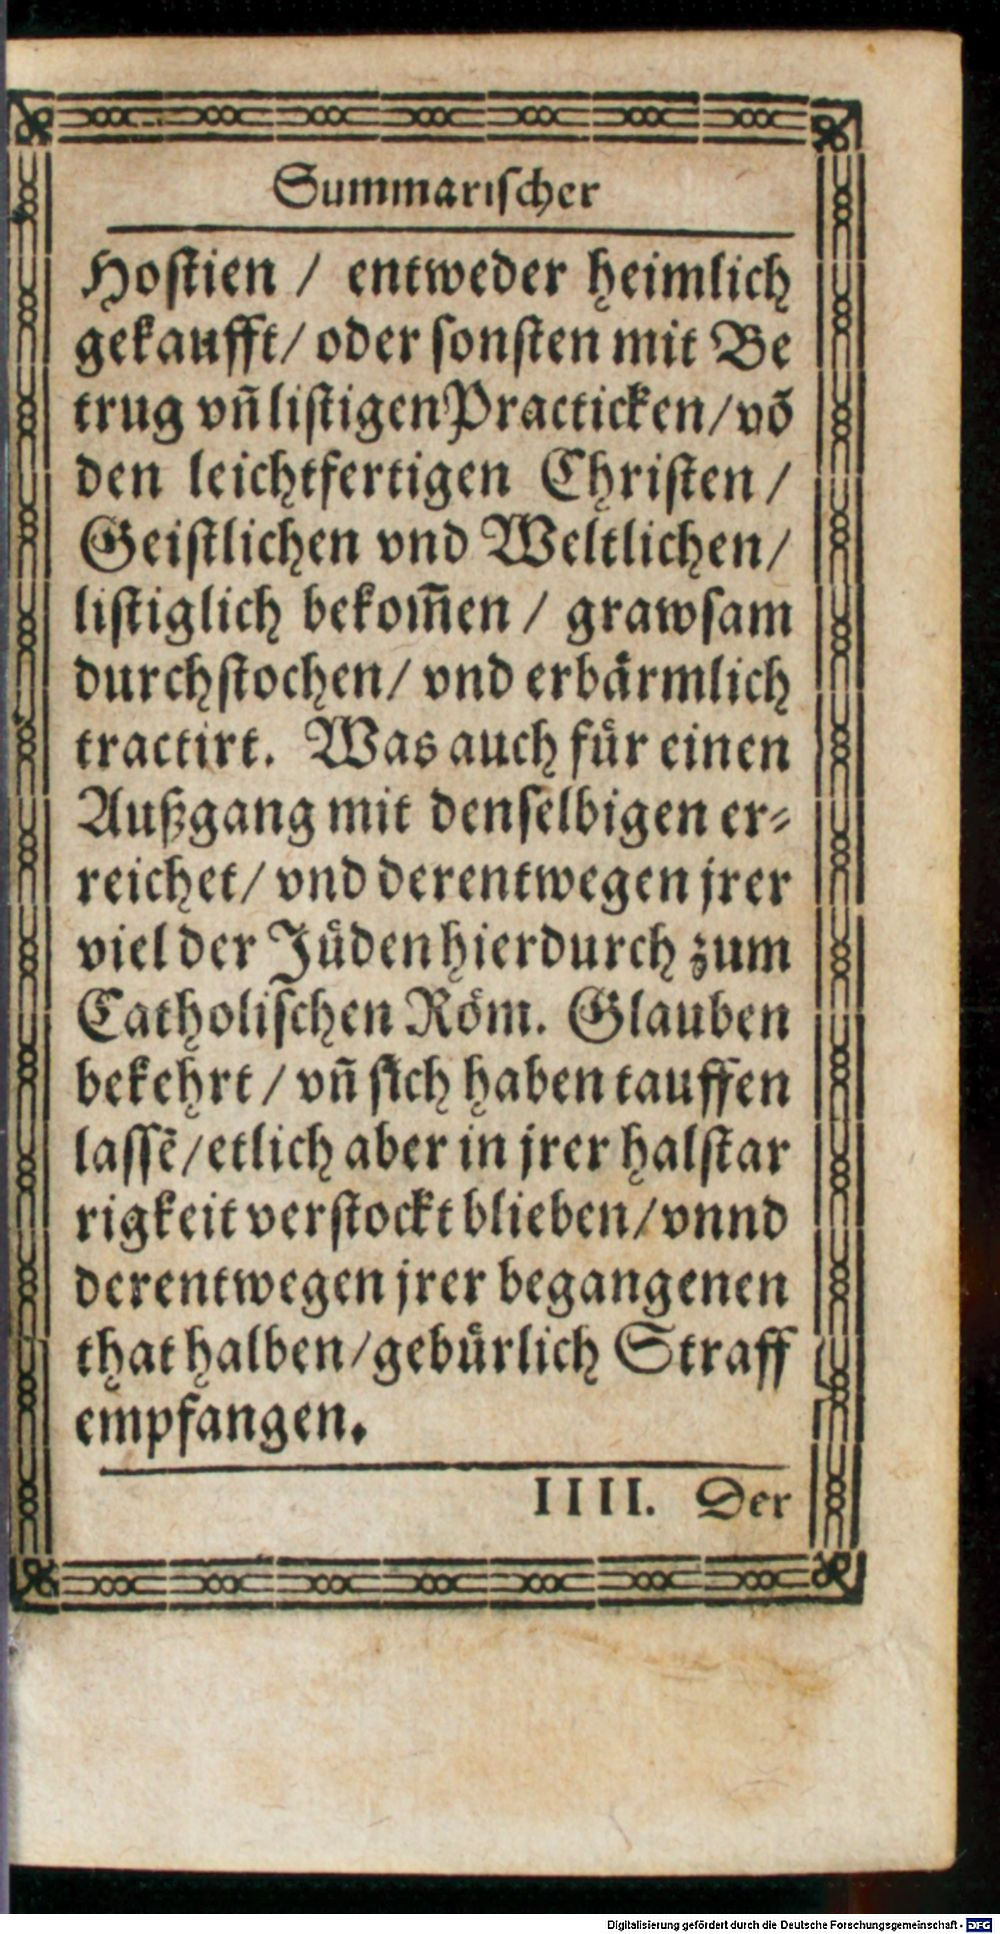 Summarischer
Hostien / entweder heimlich
gekaufft/ oder sonsten mit Be
trug vñ listigen Practicken/ võ
den leichtfertigen Christen /
Geistlichen vnd Weltlichen/
listiglich bekom̃en / grawsam
durchstochen/ vnd erbaͤrmlich
tractirt. Was auch fuͤr einen
Außgang mit denselbigen er⸗
reichet/ vnd derentwegen jrer
viel der Juͤden hierdurch zum
Catholischen Roͤm. Glauben
bekehrt / vñ sich haben tauffen
lassẽ/ etlich aber in jrer halstar
rigkeit verstockt blieben/ vnnd
derentwegen jrer begangenen
that halben/ gebuͤrlich Straff
empfangen.
IIII. Der
Digitalisierung gefördert durch die Deutsche Forschungsgemeinschaft - DFG